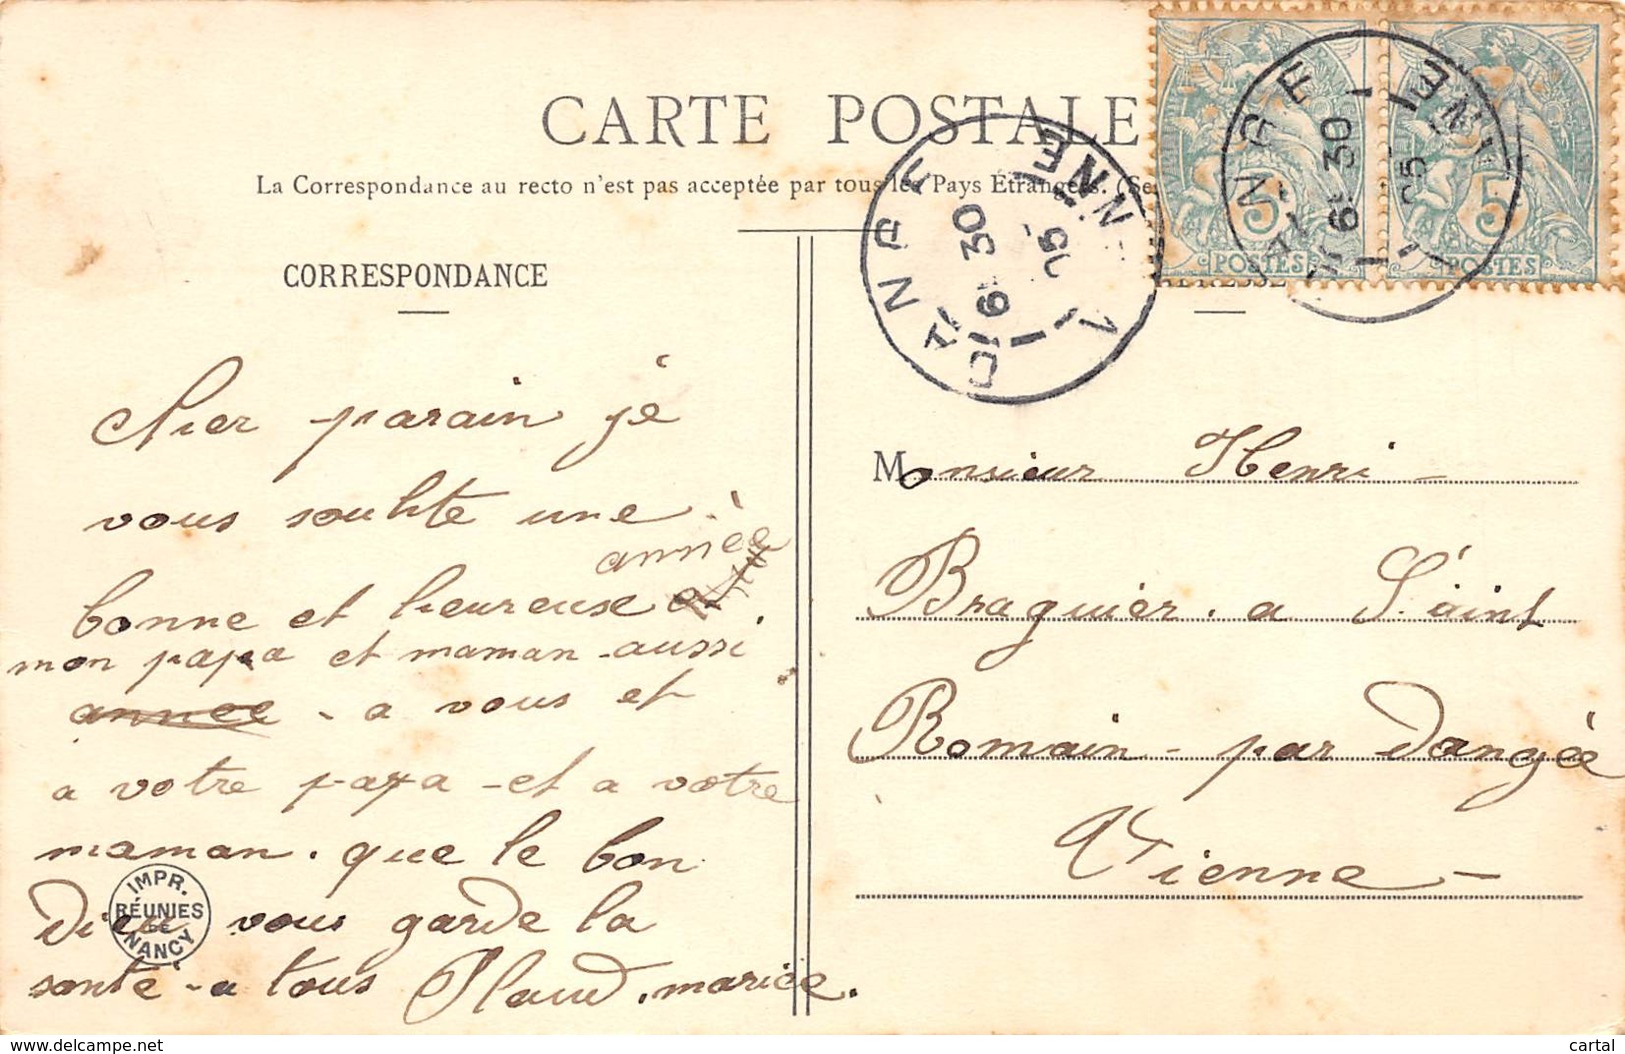 CARTE POSTALE
La Correspondance au recto n'est pas acceptée par tous les Pays Étrangers. (Se
CORRESPONDANCE
Chier parain je
vous souhte une
année
bonne et heureuse
mon papa et maman aussi
année - a vous et
a votre papa - et a votre
maman. que le bon
Dieu vous garde la
santé - a tous Plaud. marice.
IMPR.
RÉUNIES
DE
NANCY
6 30
05
NNE
5 5
POSTES POSTES
6 30
05
Monsieur Henri -
Braguier. a Saint
Romain - par dangée
Vienne -
www.delcampe.net
cartal